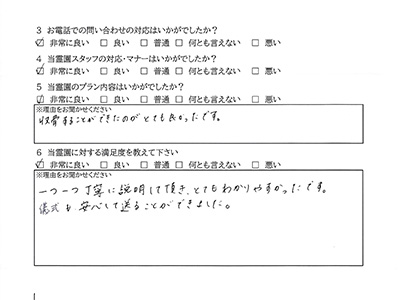 3 お電話での問い合わせの対応はいかがでしたか?
☑ 非常に良い □ 良い □ 普通 □ 何とも言えない □ 悪い
4 当霊園スタッフの対応・マナーはいかがですか?
☑ 非常に良い □ 良い □ 普通 □ 何とも言えない □ 悪い
5 当霊園のプラン内容はいかがでしたか?
☑ 非常に良い □ 良い □ 普通 □ 何とも言えない □ 悪い
※理由をお聞かせください
収骨することができたのがとても良かったです。
6 当霊園に対する満足度を教えて下さい
☑ 非常に良い □ 良い □ 普通 □ 何とも言えない □ 悪い
※理由をお聞かせください
一つ一つ丁寧に説明して頂き、とてもわかりやすかったです。
儀式も安心して送ることができました。